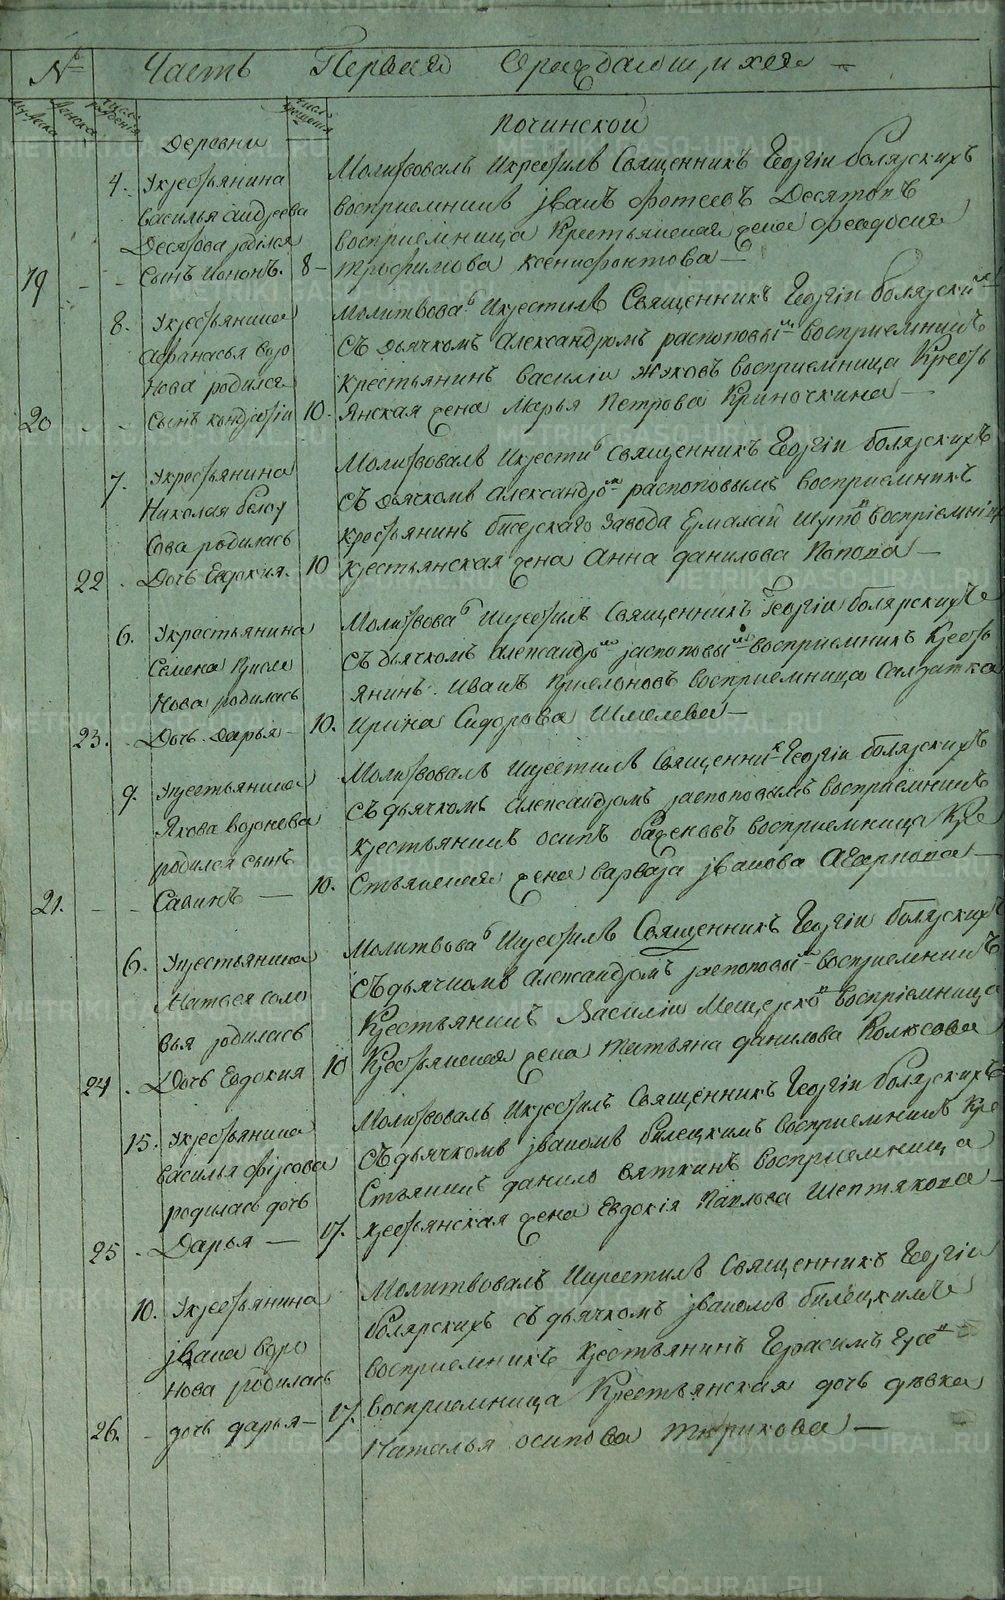 № Часть Первая О раждающихся
мужеска женска число рождения число крещения
Деревни Починской
4. У крестьянина
Василья Андреева
Десятова родился
19 сынъ Иононъ. 8
Молитвовалъ и крестилъ Священникъ Георгіи болярскихъ
восприемникъ Іванъ Фотеевъ Десятовъ
восприемница Крестьянская жена Феодосия
Трофимова Ксенофонтова
8. У крестьянина
Афанасья воро
нова родился
20 сынъ кондратiи 10.
Молитвовалъ и крестилъ Священникъ Георгіи болярских
съ дьячкомъ Александромъ распоповым восприемникъ
крестьянинъ василіи Жуковъ восприемница Кресть
янская жена Марья Петрова Криночкина
7. У крестьянина
Николая бело
усова родилась
22 Дочь Евдокия. 10
Молитвовалъ и крестил Священникъ Георгіи болярскихъ
съ дьячкомъ Александром распоповымъ восприемникъ
крестьянинъ бисерскаго завода Ермалаи восприемница
крестьянская жена Анна данилова Попова
6. У крестьянина
Семена Кисле
нова родилась
23. Дочь Дарья 10.
Молитвовал и крестилъ Священникъ Георгіи болярскихъ
съ дьячкомъ Александром распоповым восприемникъ Кресть
янинъ Иванъ восприемница Салдатка
Ирина Сидорова Шмелева
9. У крестьянина
Якова воронова
родился сынъ
21. Савинъ 10.
Молитвовалъ и крестилъ Священник Георгіи болярскихъ
съ дьячкомъ Александромъ распоповымъ восприемникъ
крестьянинъ осипъ баженовъ восприемница Кре
стьянская жена варвара Іванова
6. У крестьянина
Матвея соло
вья родилась
24 Дочь Евдокия 10
Молитвовал и крестилъ Священникъ Георгіи болярскихъ
съ дьячкомъ Александромъ распоповым восприемникъ
Крестьянинъ Василіи восприемница
Крестьянская жена Татьяна данилова Колюсова
15. У крестьянина
василья фирсова
родилась дочь
25 Дарья 17.
Молитвовалъ и крестилъ Священникъ Георгіи болярскихъ
съ дьячкомъ Іваномъ билецкимъ восприемникъ Кре
стьянинъ данило вяткинъ восприемница
крестьянская жена Евдокія Павлова Шептякова
10. У крестьянина
Івана воро
нова родилась
26. дочь дарья 17.
Молитвовалъ и крестилъ Священникъ Георгіи
болярскихъ съ дьячкомъ Іваномъ билецкимъ
восприемникъ крестьянинъ Герасимъ
восприемница Крестьянская дочь девка
Наталья осипова Тюрикова
METRIKI.GASO-URAL.RU